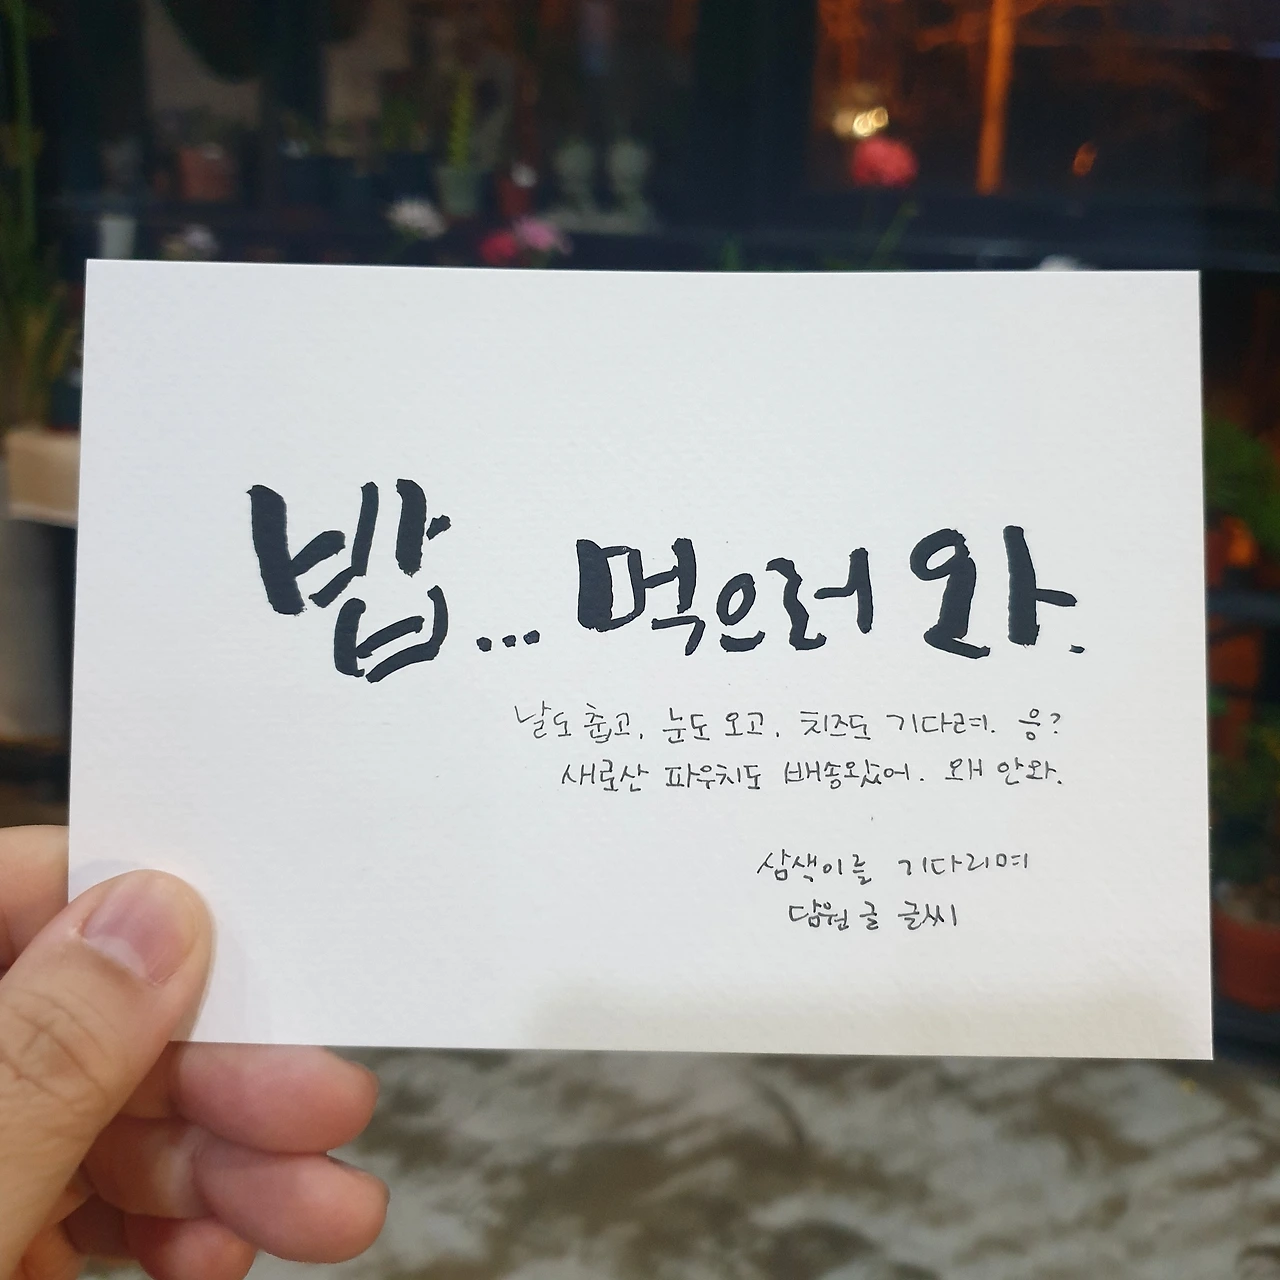 밥... 먹으러 와.
날도 춥고, 눈도 오고, 치즈도 기다려. 응?
새로산 파우치도 배송왔어. 왜 안와.
삼색이를 기다리며
담원 글 글씨